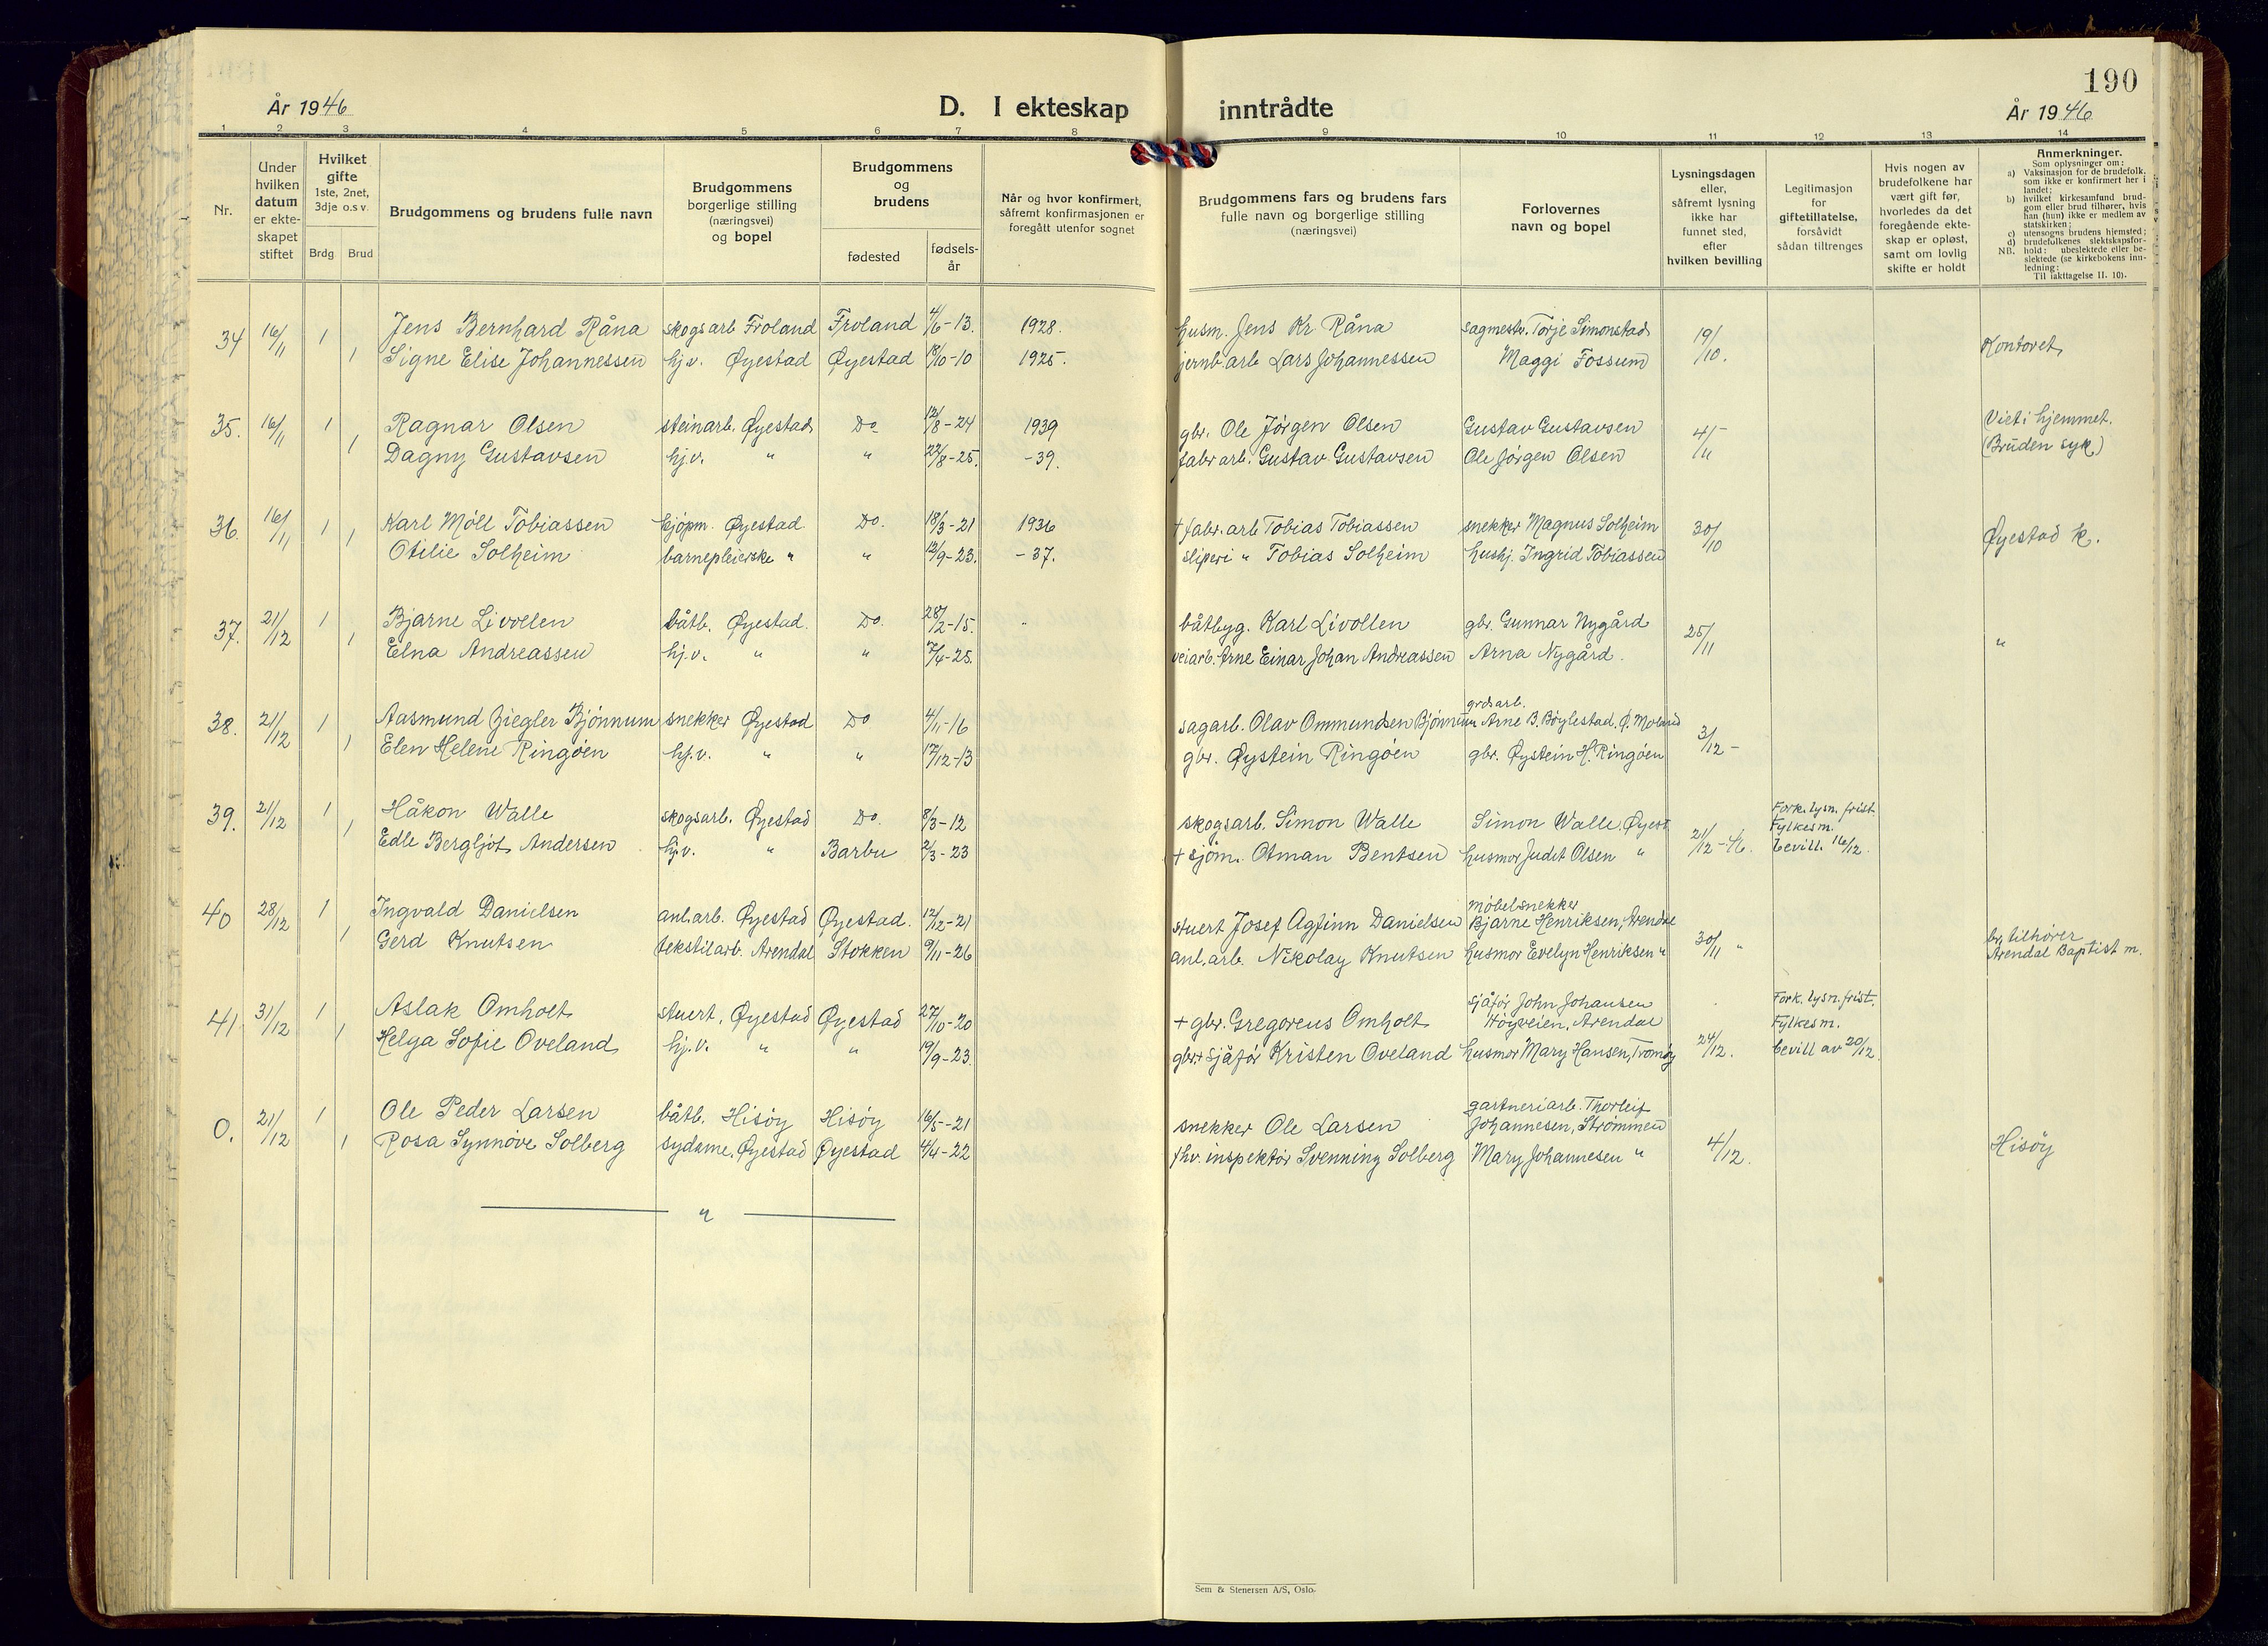 190
År 1946
D. I ekteskap inntrådte
År 1946
1 2 3 4 5 6 7 8 9 10 11 12 13 14
Nr.
Under hvilken datum er ekteskapet stiftet
Hvilket gifte 1ste, 2net, 3dje o.s.v.
Brdg Brud
Brudgommens og brudens fulle navn
Brudgommens borgerlige stilling (næringsvei) og bopel
Brudgommens og brudens
fødested
fødsels-år
Når og hvor konfirmert, såfremt konfirmasjonen er foregått utenfor sognet
Brudgommens fars og brudens fars fulle navn og borgerlige stilling (næringsvei)
Forlovernes navn og bopel
Lysningsdagen eller, såfremt lysning ikke har funnet sted, efter hvilken bevilling
Legitimasjon for giftetillatelse, forsåvidt sådan tiltrenges
Hvis nogen av brudefolkene har vært gift før, hvorledes da det foregående ekteskap er opløst, samt om lovlig skifte er holdt
Anmerkninger.
Som oplysninger om:
a) Vaksinasjon for de brudefolk, som ikke er konfirmert her i landet;
b) hvilket kirkesamfund brudgom eller brud tilhører, hvis han (hun) ikke er medlem av statskirken;
c) utensogns brudens hjemsted;
d) brudefolkenes slektskapsforhold: ubeslektede eller beslektede (se kirkebokens innledning:
NB. Til iakttagelse II. 10).
34 16/11 1 Jens Bernhard Råna skogsarb Froland Froland 4/6-13. 1928. husm. Jens Kr. Råna sagmestr. Torje Simonstad 19/10. Kontoret
1 Signe Elise Johannessen hj.v. Øyestad Øyestad 18/10-10 1925. jernb.arb Lars Johannessen Maggi Fossum
35. 16/11 1 Ragnar Olsen steinarb. Øyestad Do 12/8-24 1939 gbr. Ole Jörgen Olsen Gustav Gustavsen 4/11- Viet i hjemmet.
1 Dagny Gustavsen hj.v. " " 22/8-25. -39. fabr arb. Gustav Gustavsen Ole Jörgen Olsen (Bruden syk)
36. 16/11 1 Karl Möll Tobiassen kjöpm. Øyestad. Do. 18/3-21 1936 + fabr. arb Tobias Tobiassen snekker Magnus Solheim 30/10 Øyestad k.
1 Otilie Solheim barnepleierske " " 12/9-23. -37. sliperi " Tobias Solheim hushj. Ingrid Tobiassen
37. 21/12 1 Bjarne Livolen båtb. Øyestad. Do. 28/2-15. " båtbyg. Karl Livollen gbr. Gunnar Nygård 25/11 "
1 Elna Andreassen hj.v. " " 7/4-25. veiarb. Arne Einar Johan Andreassen Arna Nygård.
38. 21/12 1 Aasmund Ziegler Bjönnum snekker Øyestad Do 4/1-16 sagarb. Olav Ommundsen Bjönnum grdsarb. Arne B. Böylestad. Ö. Moland 3/12-
1 Elen Helene Ringöen hj.v. " " 17/12-13 gbr. Øystein Ringöen gbr. Øystein H. Ringöen
39. 21/12 1 Håkon Walle skogsarb. Øyestad Do. 8/3-12 skogsarb. Simon Walle Simon Walle, Øyest. 21/12-46. Fork. lysn. frist. Fylkesm. bevill. 16/12.
1 Edle Bergljot Andersen hj.v. " Barbu 2/3-23 + sjöm. Otman Bentsen husmor Judit Olsen "
40 28/12 1 Ingvald Danielsen anl.arb. Øyestad Øyestad. 12/12-21 stuert Josef Agfinn Danielsen möbelsnekker Bjarne Henriksen, Arendal 30/11 " br. tilhører
1 Gerd Knutsen tekstilarb. Arendal Stokken 9/11-26 anl. arb. Nikolay Knutsen husmor Evelyn Henriksen " Arendal Baptist m.
41. 31/12 1 Aslak Omholt stuert, Øyestad Øyestad 27/10-20 + gbr. Gregoreus Omholt sjåför John Johansen Högveien, Arendal 24/12. Fork. lysn. frist. Fylkesm. bevill av 20/12.
1 Helga Sofie Oveland hj.v. " " 19/9-23. gbr + sjåför Kristen Oveland husmor Mary Hansen, Tromöy
0. 21/12 1 Ole Peder Larsen båtb. Hisöy Hisöy 16/5-21 snekker Ole Larsen gartneriarb. Thorleif Johannesen, Strömmen 4/12. Hisöy
1 Rosa Synnöve Solberg sydame, Øyestad Øyestad 4/4-22 fhv. inspektör Svenning Solberg Mary Johannesen "
"
Sem & Stenersen A/S, Oslo.